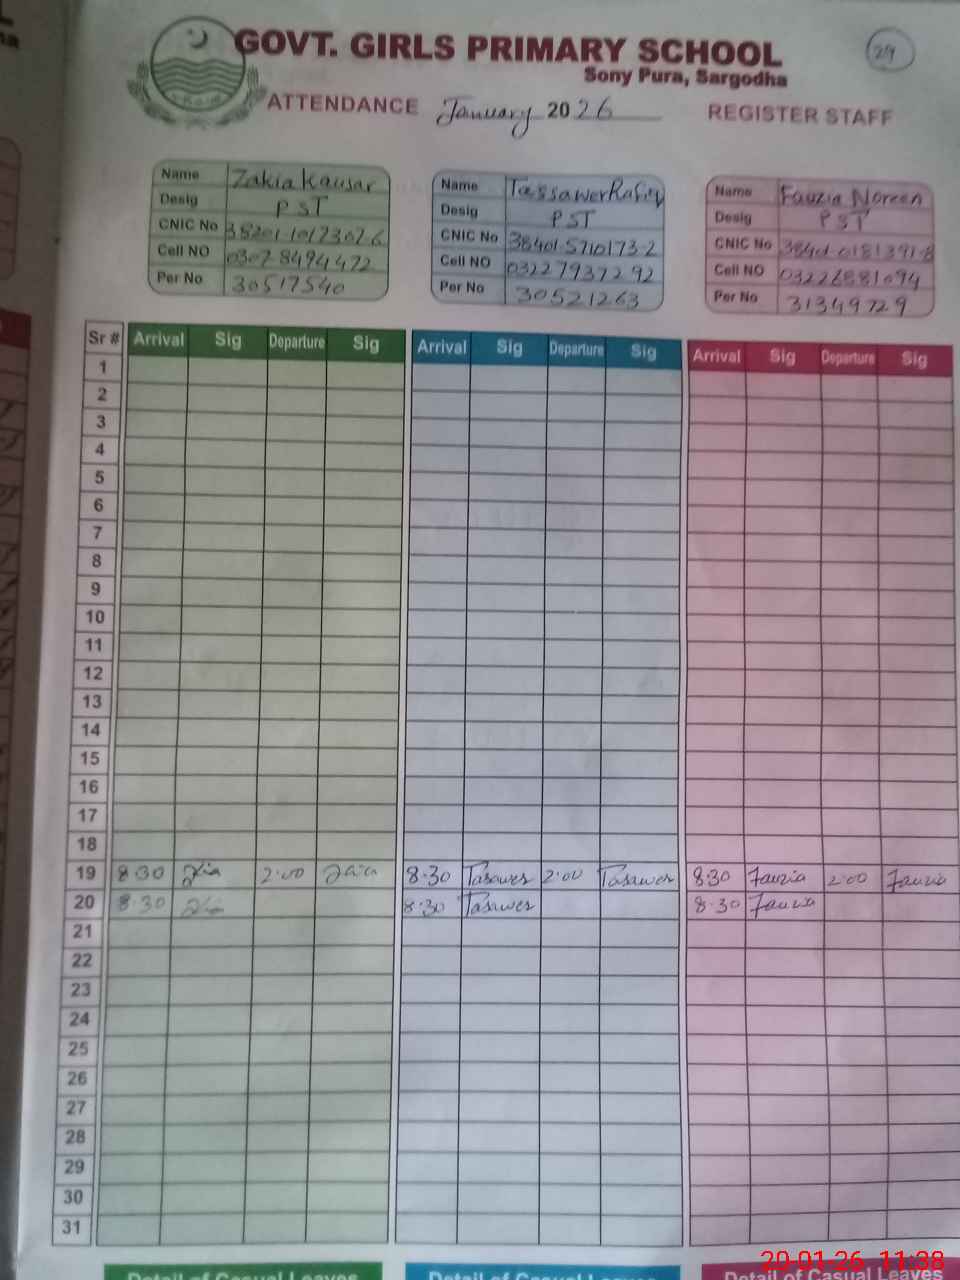 GOVT. GIRLS PRIMARY SCHOOL
Sony Pura, Sargodha
29
ATTENDANCE January 2026 REGISTER STAFF
Name Zakia Kausar
Desig PST
CNIC No 38201-10173026
Cell NO 0307 8494472
Per No 30517540
Name Tassawer Rafiq
Desig PST
CNIC No 38401-5710173-2
Cell NO 03227937292
Per No 30521263
Name Fauzia Noreen
Desig PST
CNIC No 38401-0181391-8
Cell NO 03226881094
Per No 31349729
Sr # Arrival Sig Departure Sig Arrival Sig Departure Sig Arrival Sig Departure Sig
1
2
3
4
5
6
7
8
9
10
11
12
13
14
15
16
17
18
19 8:30 2:00 8:30 Tasawer 2:00 Tasawer 8:30 Fauzia 2:00 Fauzia
20 8:30 8:30 Tasawer 8:30 Fauzia
21
22
23
24
25
26
27
28
29
30
31
Detail of Casual Leaves Detail of Casual Leaves Detail of Casual Leaves
20-01-26 11:38